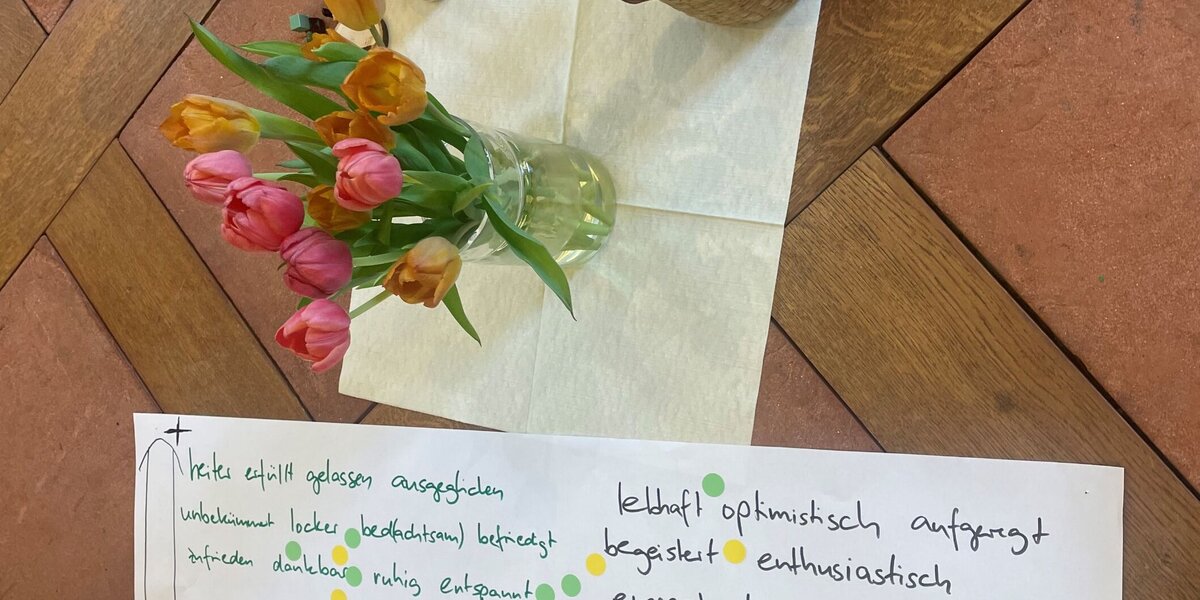 +
heiter erfüllt gelassen ausgeglichen
unbekümmert locker bed(achtsam) befriedigt
zufrieden dankbar ruhig entspannt
lebhaft optimistisch aufgeregt
begeistert enthusiastisch